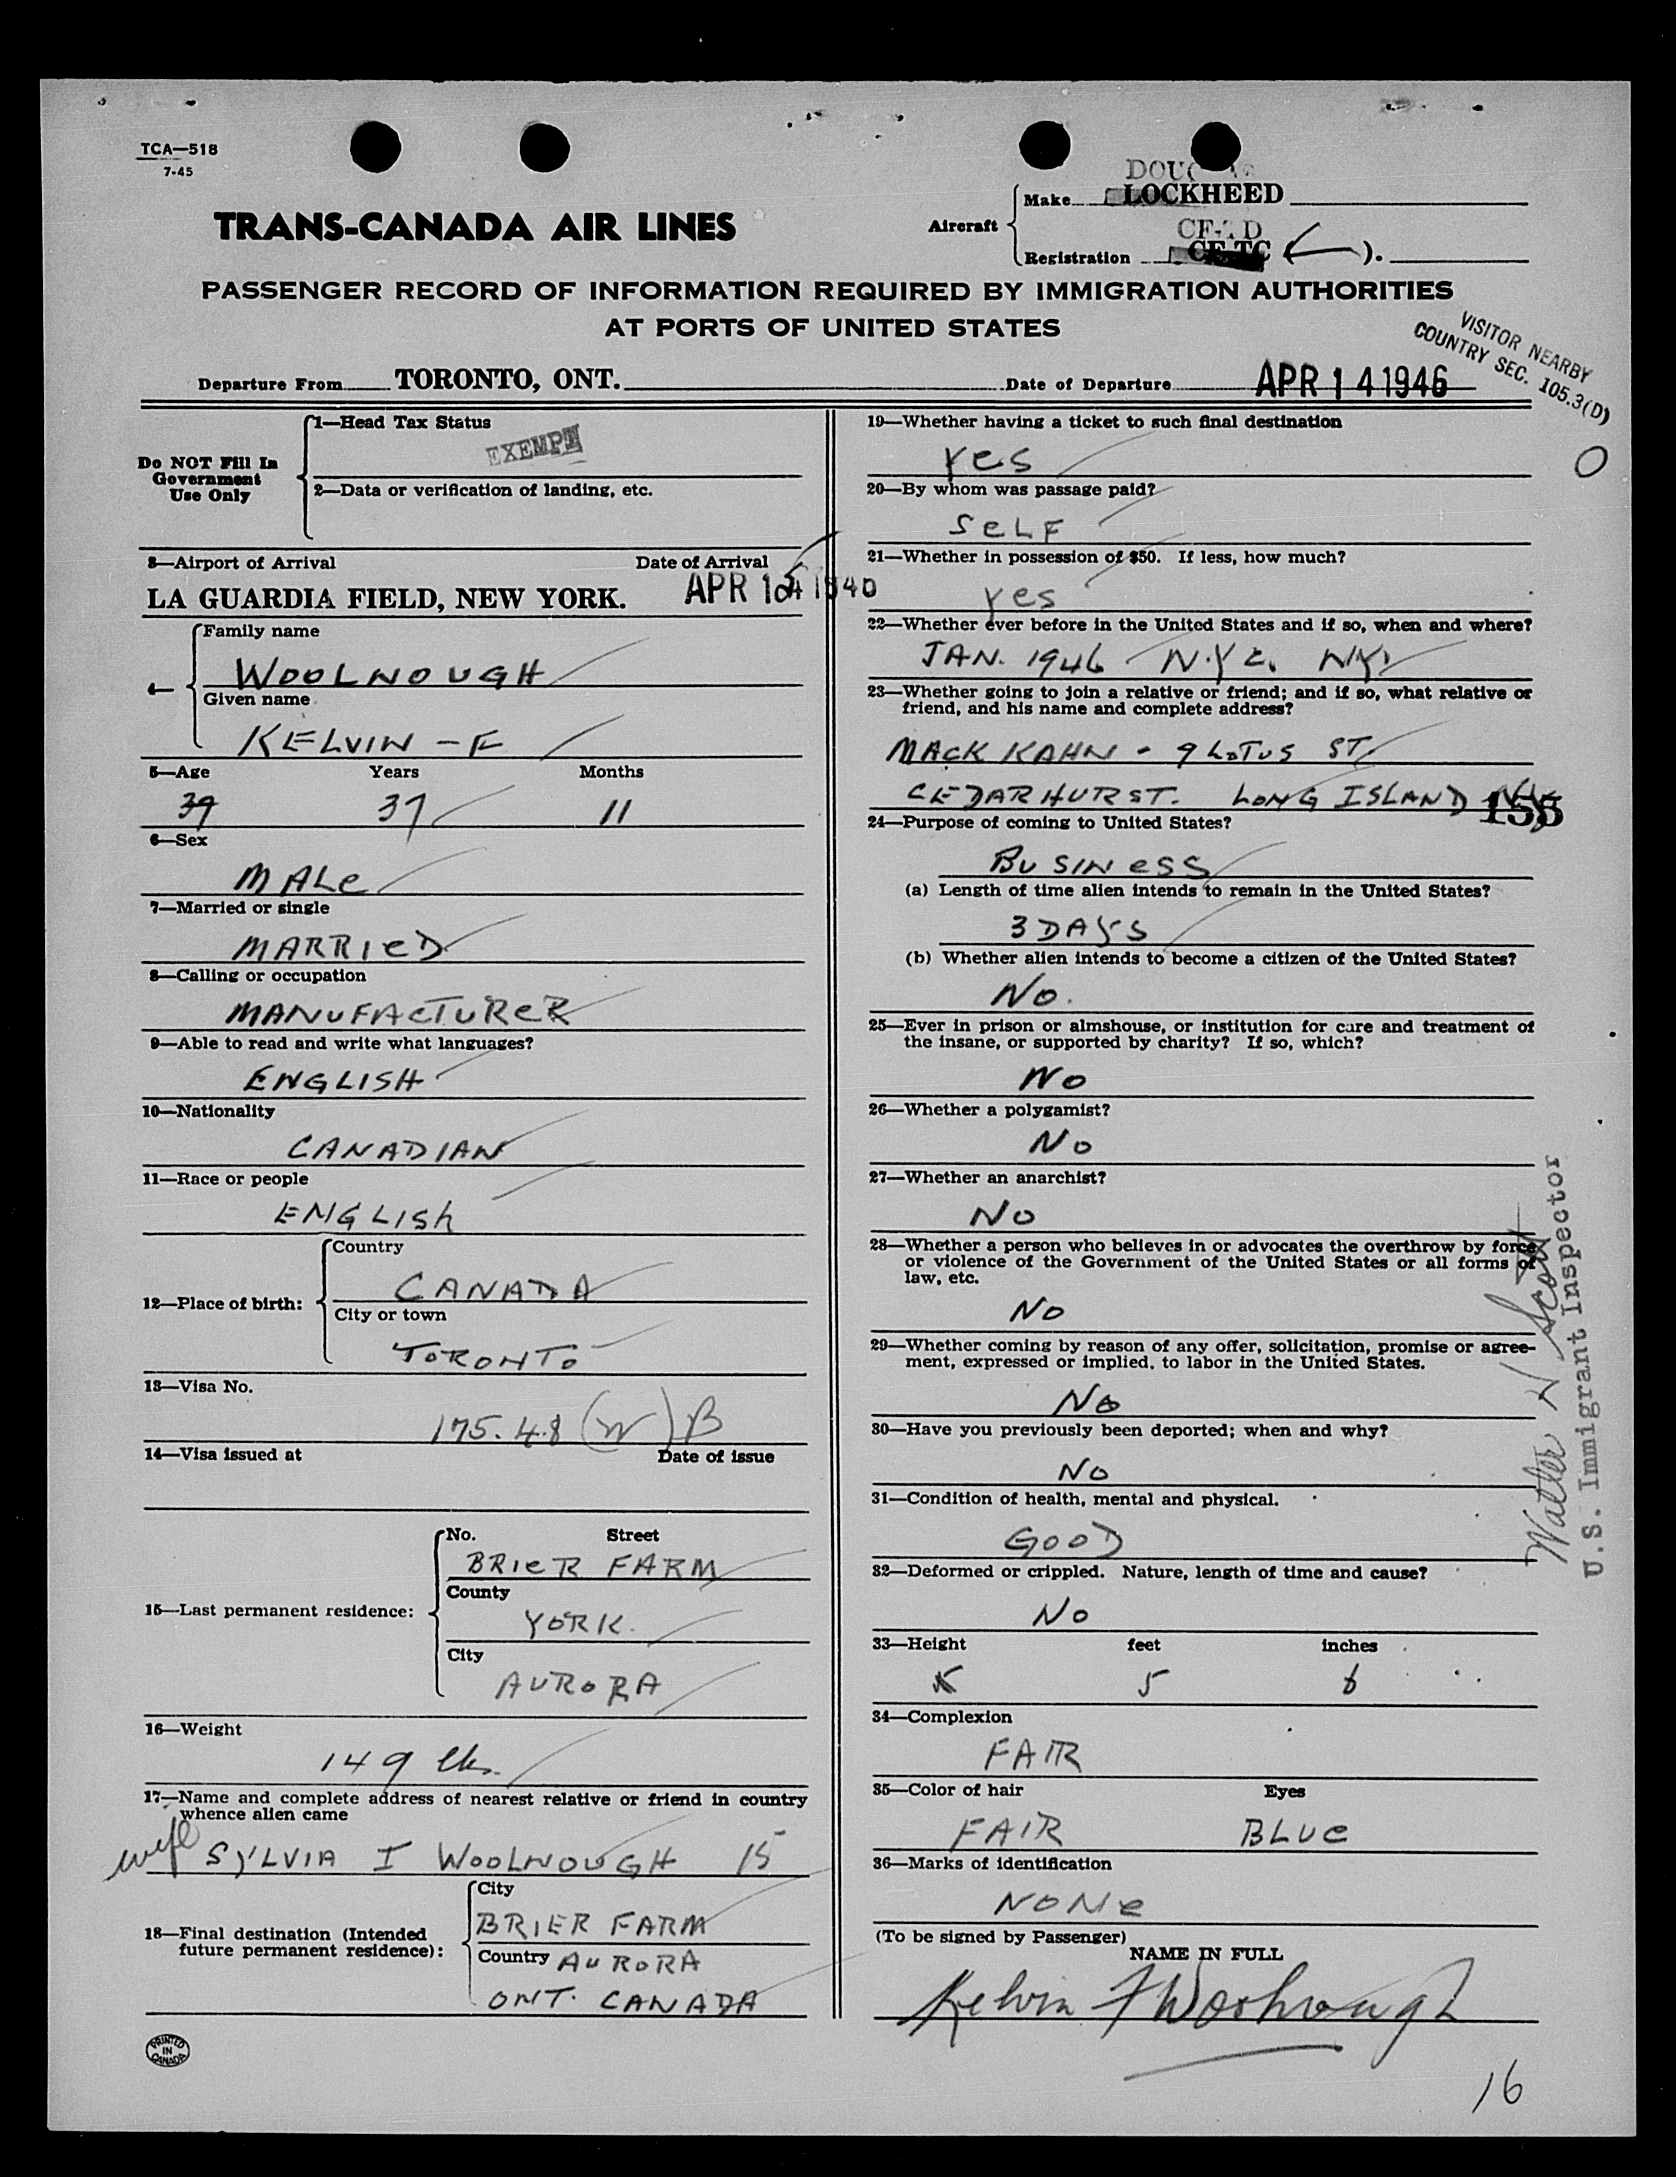 TCA—518
7-45
TRANS-CANADA AIR LINES
Aircraft
Make LOCKHEED
Registration CF-TC ( ).
PASSENGER RECORD OF INFORMATION REQUIRED BY IMMIGRATION AUTHORITIES
AT PORTS OF UNITED STATES
VISITOR NEARBY
COUNTRY SEC. 105.3(D)
Departure From TORONTO, ONT. Date of Departure APR 14 1946
Do NOT Fill In
Government
Use Only
1—Head Tax Status
EXEMPT
2—Data or verification of landing, etc.
3—Airport of Arrival Date of Arrival
LA GUARDIA FIELD, NEW YORK. APR
4—
Family name
WOOLNOUGH
Given name
KELVIN - F
5—Age Years Months
39 37 11
6—Sex
MALE
7—Married or single
MARRIED
8—Calling or occupation
MANUFACTURER
9—Able to read and write what languages?
ENGLISH
10—Nationality
CANADIAN
11—Race or people
ENGLISH
12—Place of birth:
Country
CANADA
City or town
TORONTO
13—Visa No.
175.48 (W) B
14—Visa issued at Date of issue
15—Last permanent residence:
No. Street
BRIER FARM
County
YORK.
City
AURORA
16—Weight
149 lbs.
17—Name and complete address of nearest relative or friend in country
whence alien came
wife SYLVIA I WOOLNOUGH 15
18—Final destination (Intended
future permanent residence):
City
BRIER FARM
Country AURORA
ONT. CANADA
PRINTED
IN
CANADA
19—Whether having a ticket to such final destination
Yes
0
20—By whom was passage paid?
SELF
21—Whether in possession of $50. If less, how much?
Yes
22—Whether ever before in the United States and if so, when and where?
JAN. 1946 N.Y.C. N.Y.
23—Whether going to join a relative or friend; and if so, what relative or
friend, and his name and complete address?
MACK KAHN - 9 LOTUS ST.
CEDARHURST. LONG ISLAND N.Y.
155
24—Purpose of coming to United States?
BUSINESS
(a) Length of time alien intends to remain in the United States?
3 DAYS
(b) Whether alien intends to become a citizen of the United States?
No.
25—Ever in prison or almshouse, or institution for care and treatment of
the insane, or supported by charity? If so, which?
No
26—Whether a polygamist?
No
27—Whether an anarchist?
No
28—Whether a person who believes in or advocates the overthrow by force
or violence of the Government of the United States or all forms of
law, etc.
No
29—Whether coming by reason of any offer, solicitation, promise or agree-
ment, expressed or implied, to labor in the United States.
No
30—Have you previously been deported; when and why?
No
31—Condition of health, mental and physical.
GOOD
32—Deformed or crippled. Nature, length of time and cause?
No
33—Height feet inches
5 6
34—Complexion
FAIR
35—Color of hair Eyes
FAIR BLUE
36—Marks of identification
NONE
(To be signed by Passenger)
NAME IN FULL
Kelvin F Woolnough
Walter W Scott
U.S. Immigrant Inspector
16